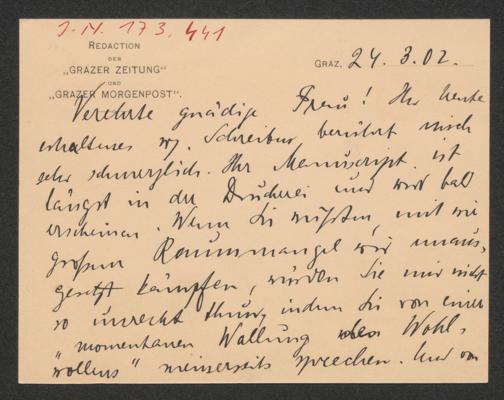 J.N. 173.441
REDACTION
DER
„GRAZER ZEITUNG“
UND
„GRAZER MORGENPOST“.
GRAZ, 24. 3. 02.
Verehrte gnädige Frau! Ihr heute
erhaltenes Schreiben berührt mich
sehr schmerzlich. Ihr Manuscript ist
längst in der Druckerei und wird bald
erscheinen. Wenn Sie wüßten, mit wie
großem Raummangel wir unaus-
gesetzt kämpfen, würden Sie mir nicht
so unrecht thun, indem Sie von einer
„momentanen Wallung des Wohl-
wollens“ meinerseits sprechen. Und